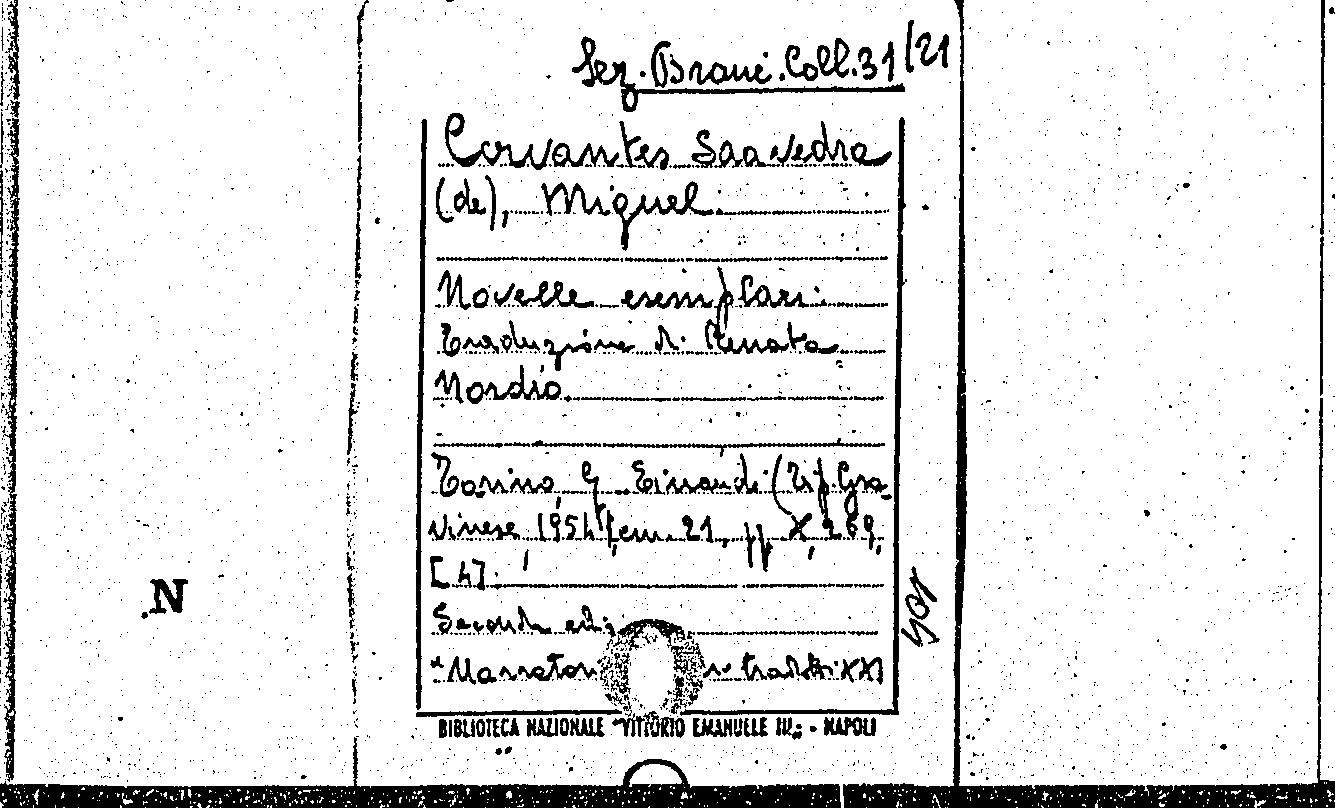 Sez. Branc. Coll. 31/21
Cervantes Saavedra
(de), Miguel.
Novelle esemplari.
Traduzione di Renata
Nordio.
Torino, G. Einaudi (Tip. Gra-
vinese) 1954, cm. 21, pp. X, 269,
[4].
Seconda ediz
"Narratori stranieri XXI
BIBLIOTECA NAZIONALE "VITTORIO EMANUELE III" - NAPOLI
N